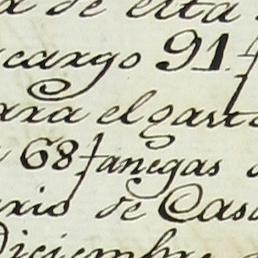 de esta
cargo 91 f
ara el gasto
68 fanegas
ario de Cas
Diciembre